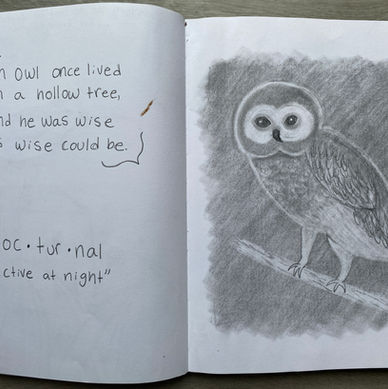 n owl once lived
n a hollow tree,
nd he was wise
s wise could be.
oc·tur·nal
ctive at night"